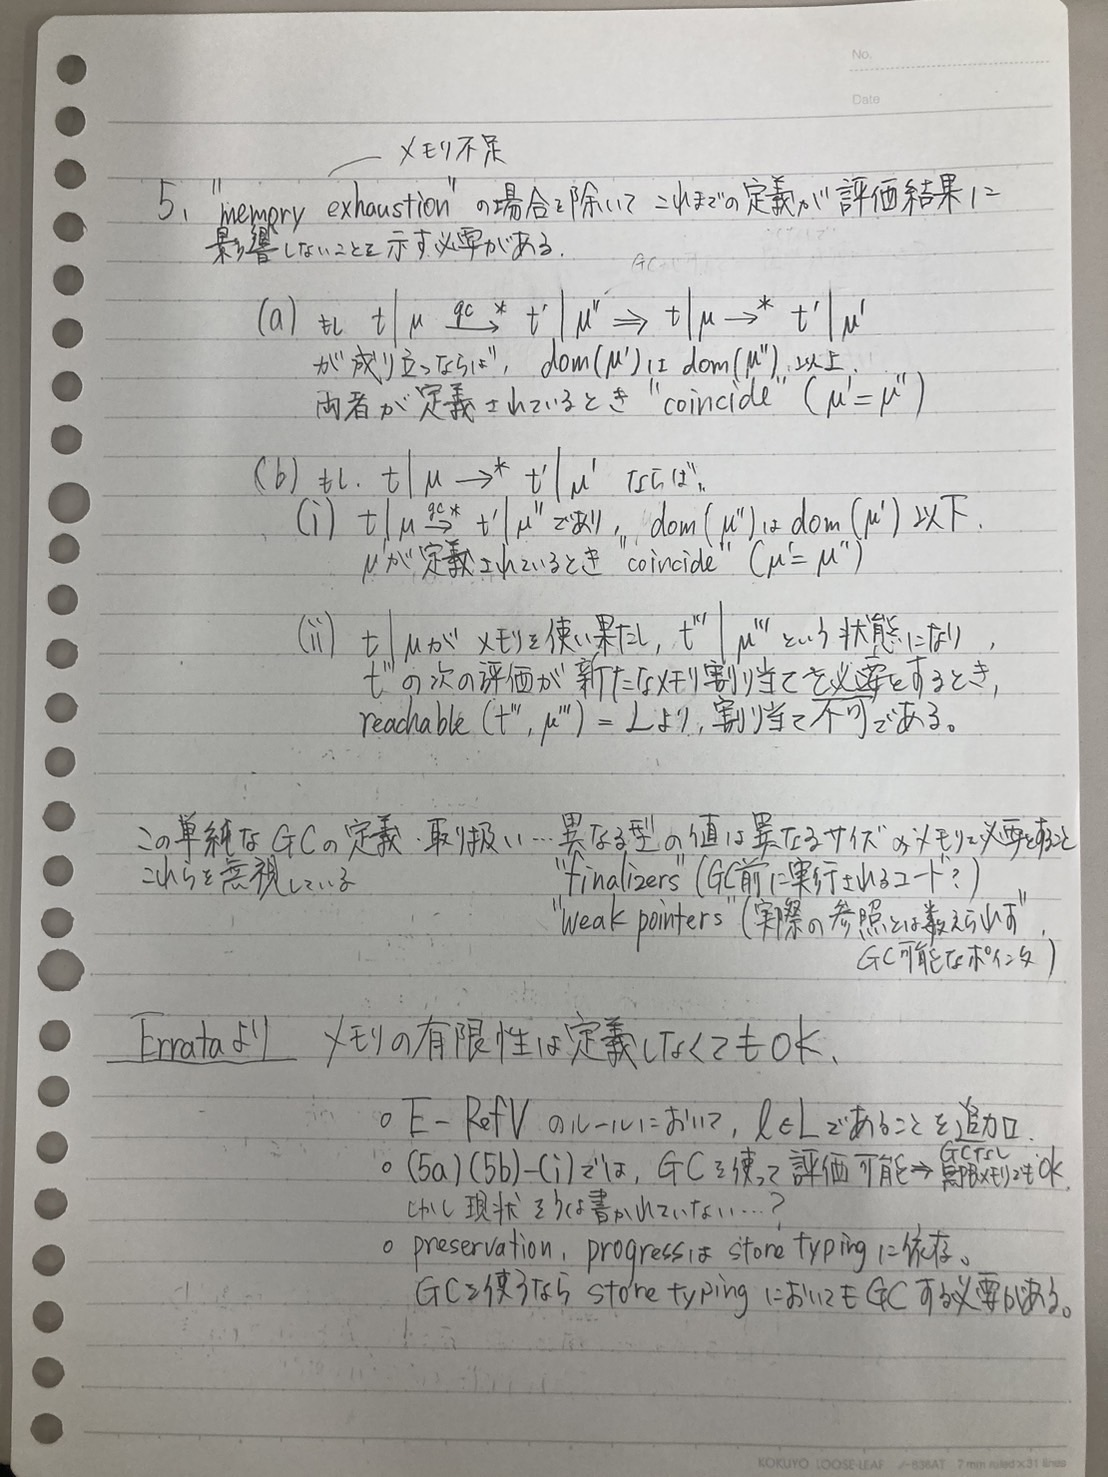 No.
Date
メモリ不足
5. "memory exhaustion" の場合を除いて これまでの定義が評価結果に
影響しないことを示す必要がある.
(a) もし t|μ gc→* t'|μ'' ⇒ t|μ →* t'|μ'
が成り立つならば, dom(μ') は dom(μ'') 以上.
両者が定義されているとき "coincide" (μ'=μ'')
(b) もし. t|μ →* t'|μ' ならば,
(i) t|μ gc→* t'|μ'' であり, dom(μ'') は dom(μ') 以下.
μ'が定義されているとき "coincide" (μ'=μ'')
(ii) t|μが メモリを使い果たし, t'''|μ''' という状態になり,
t'''の次の評価が新たなメモリ割り当てを必要とするとき,
reachable (t''', μ''') = L より, 割り当て不可である。
この単純なGCの定義・取り扱い… 異なる型の値は異なるサイズのメモリを必要とすること
これらを無視している "finalizers" (GC前に実行されるコード?)
"weak pointers" (実際の参照とは数えられず,
GC可能なポインタ)
Errataより メモリの有限性は定義しなくてもOK.
○ E-RefV のルールにおいて, l∈L であることを追加.
GCなし
○ (5a)(5b)-(i)では, GCを使って評価可能⇒無限メモリでもOK.
しかし現状そうは書かれていない…?
○ preservation, progressは store typing に依存。
GCを使うなら store typing においてもGCする必要がある。
KOKUYO LOOSE-LEAF ノ-836AT 7 mm ruled×31 lines